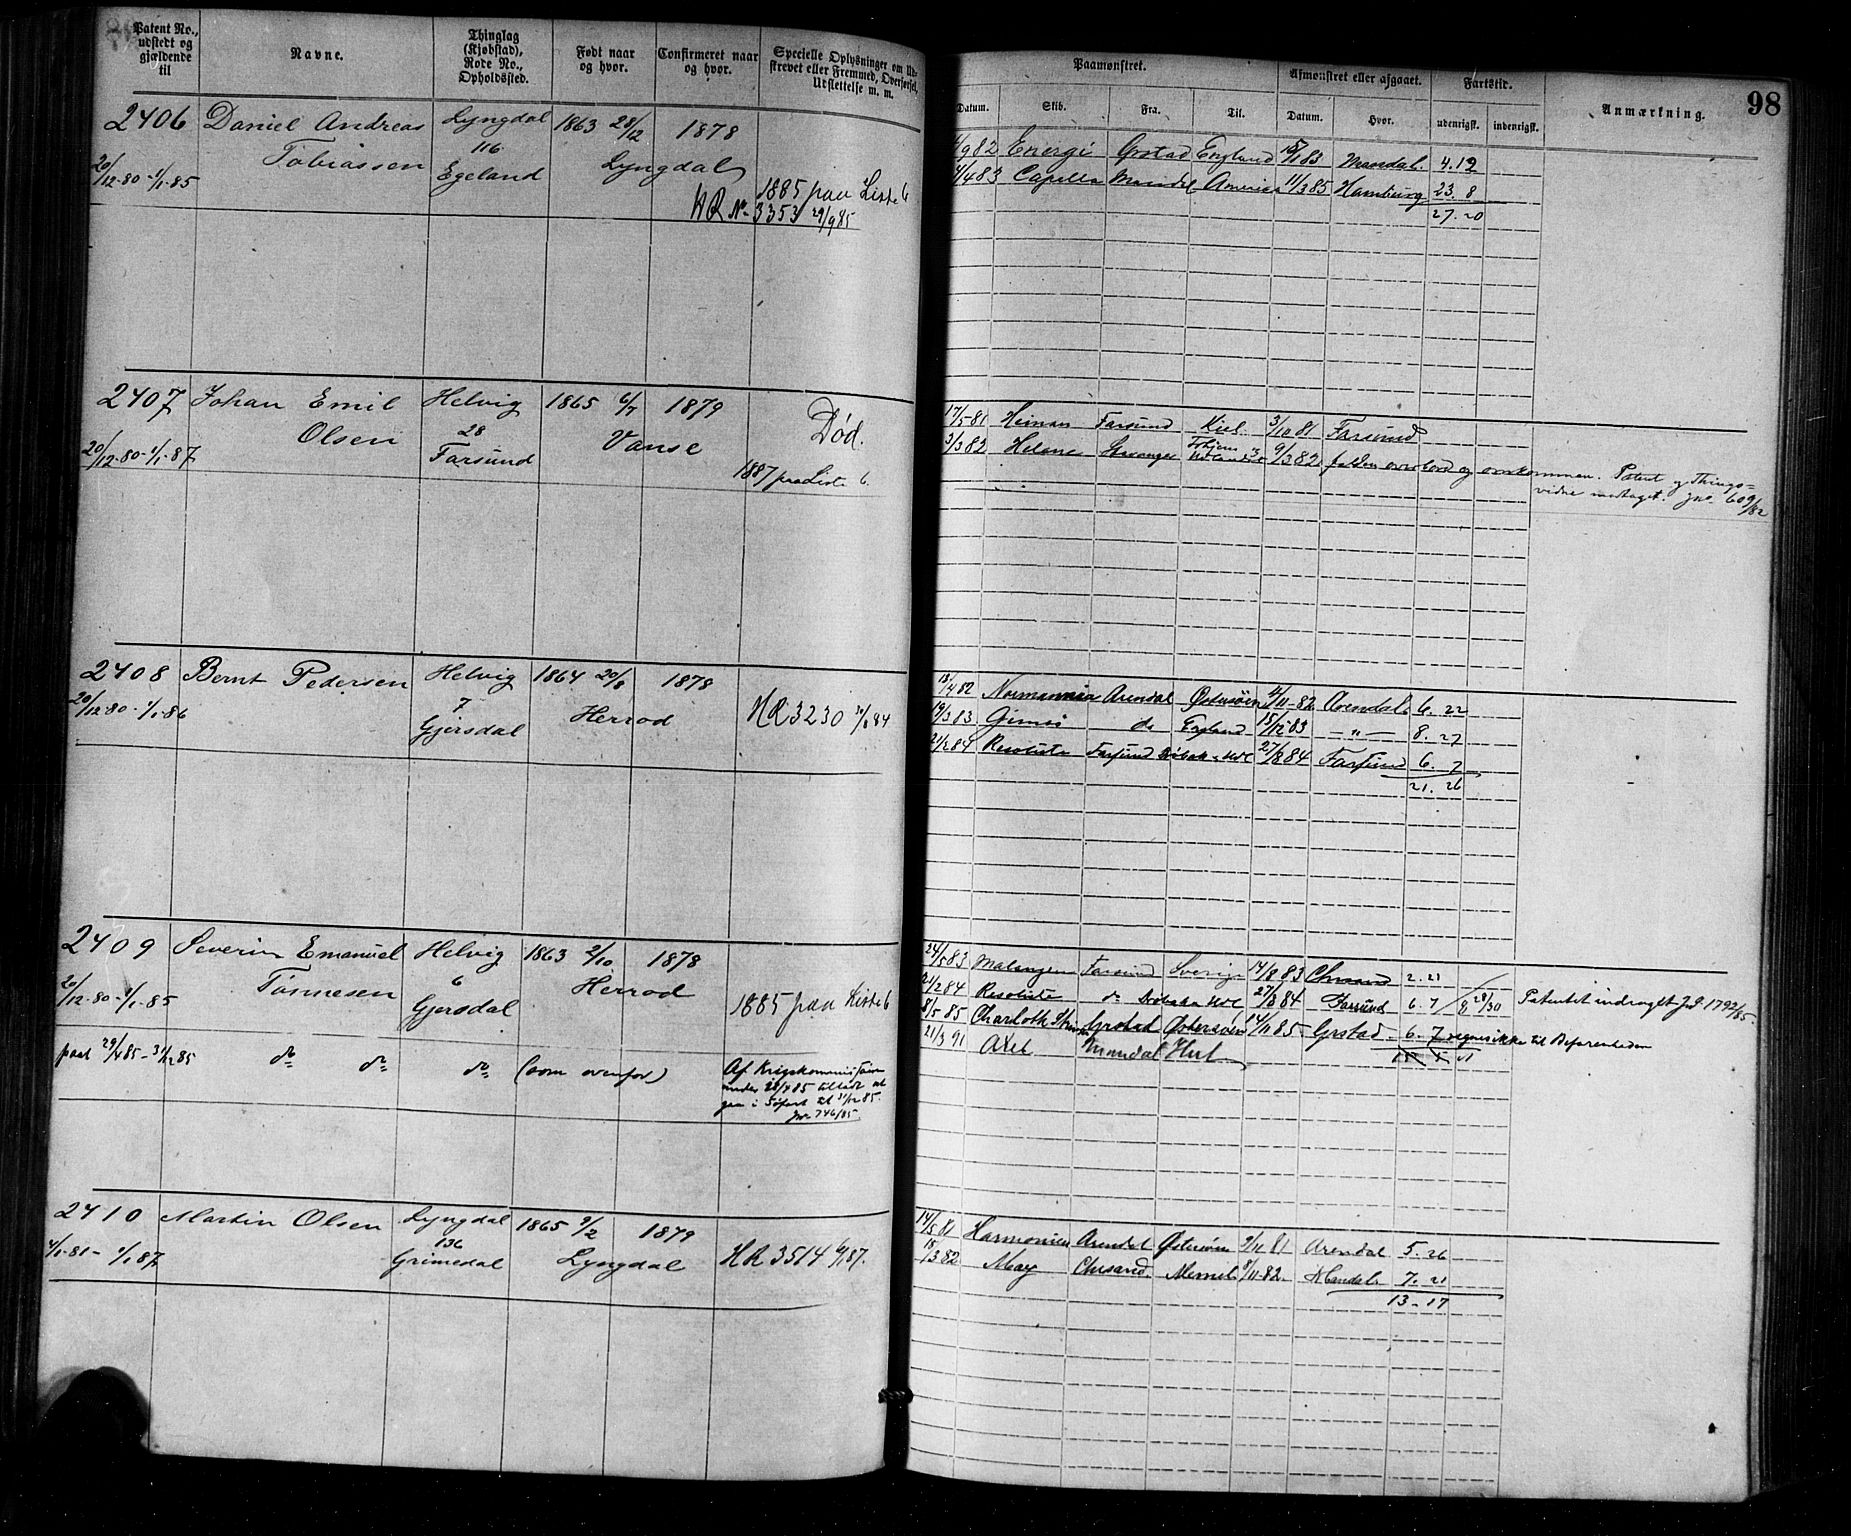 Patent No., udstedt og gjældende til
Navne.
Thinglag (Kjøbstad), Rode No., Opholdssted.
Født naar og hvor.
Confirmeret naar og hvor.
Specielle Oplysninger om Ud-
skrevet eller Fremmed, Overførsel,
Udslettelse m. m.
Paamønstret.
Afmønstret eller afgaaet.
Fartstid.
Anmærkning.
98
Datum.
Skib.
Fra.
Til.
Datum.
Hvor.
udenrigsk.
indenrigsk.
2406 Daniel Andreas Lyngdal 1863 28/12 1878
Tobiassen 116
20/12-80-1/1-85 Egeland Lyngdal
1885 paa Liste 6
HR No 3353 29/9 85
Energi Grstad England 83 Mandal. 4.12
4 83 Capella Mandal America 11/3 85 Hamburg 23. 8
27. 20
2407 Johan Emil Helvig 1865 6/7 1879
Olsen 28 Vanse Død.
20/12-80-1/1-87 Farsund
1887 paa Liste 6.
17/5-81 Farsund Kiel 3/10 81 Farsund
3/3 82 Helene Stavanger 9/3 82 falden overbord og omkommen. Patent og Things-
vidne modtaget. jno. 609/82
2408 Bernt Pedersen Helvig 1864 20/8 1878
7
20/12-80-1/1-86 Gjersdal Herrod HR 3230 84
18/4 82 Normannia Arendal Østersøen 11-82 Arendal 6. 22
19/3 83 do England 15/12 83 —"— 8. 27
84 Resolute Farsund 27/8 84 Farsund 6. 7
21. 26
2409 Severin Emanuel Helvig 1863 2/10 1878
Tønnesen 6 Herrod
20/12-80-1/1-85 Gjersdal 1885 paa Liste 6
paal 29/4 85-31/12 85 do do do (som ovenfor) Af Krigskommissairen
under 28/4 85 tilladt at
gaa i Søfart til 31/12 85.
jno 746/85.
24/5 83 Malangen Farsund Sverige 14/8 83 Chrsand 2. 21
2 84 Resolute do 27/8 84 Farsund 6. 7 8 28/30 Patentet inddraget J.No 1792/85.
8/5 85 Charlotte Grstad Østersøen 11 85 Grstad 6. 7 regnes ikke til
21/3 91 Axel Mandal Hul
2410 Martin Olsen Lyngdal 1865 9/2 1879
136
4/1-81-1/1 87 Grimedal Lyngdal HR 3514 87.
14/5 81 Harmonien Arendal Østersøen 9/11 81 Arendal 5. 26
18/3 82 May Chrsand. Memel 8/11-82. Mandal. 7. 21
13-17